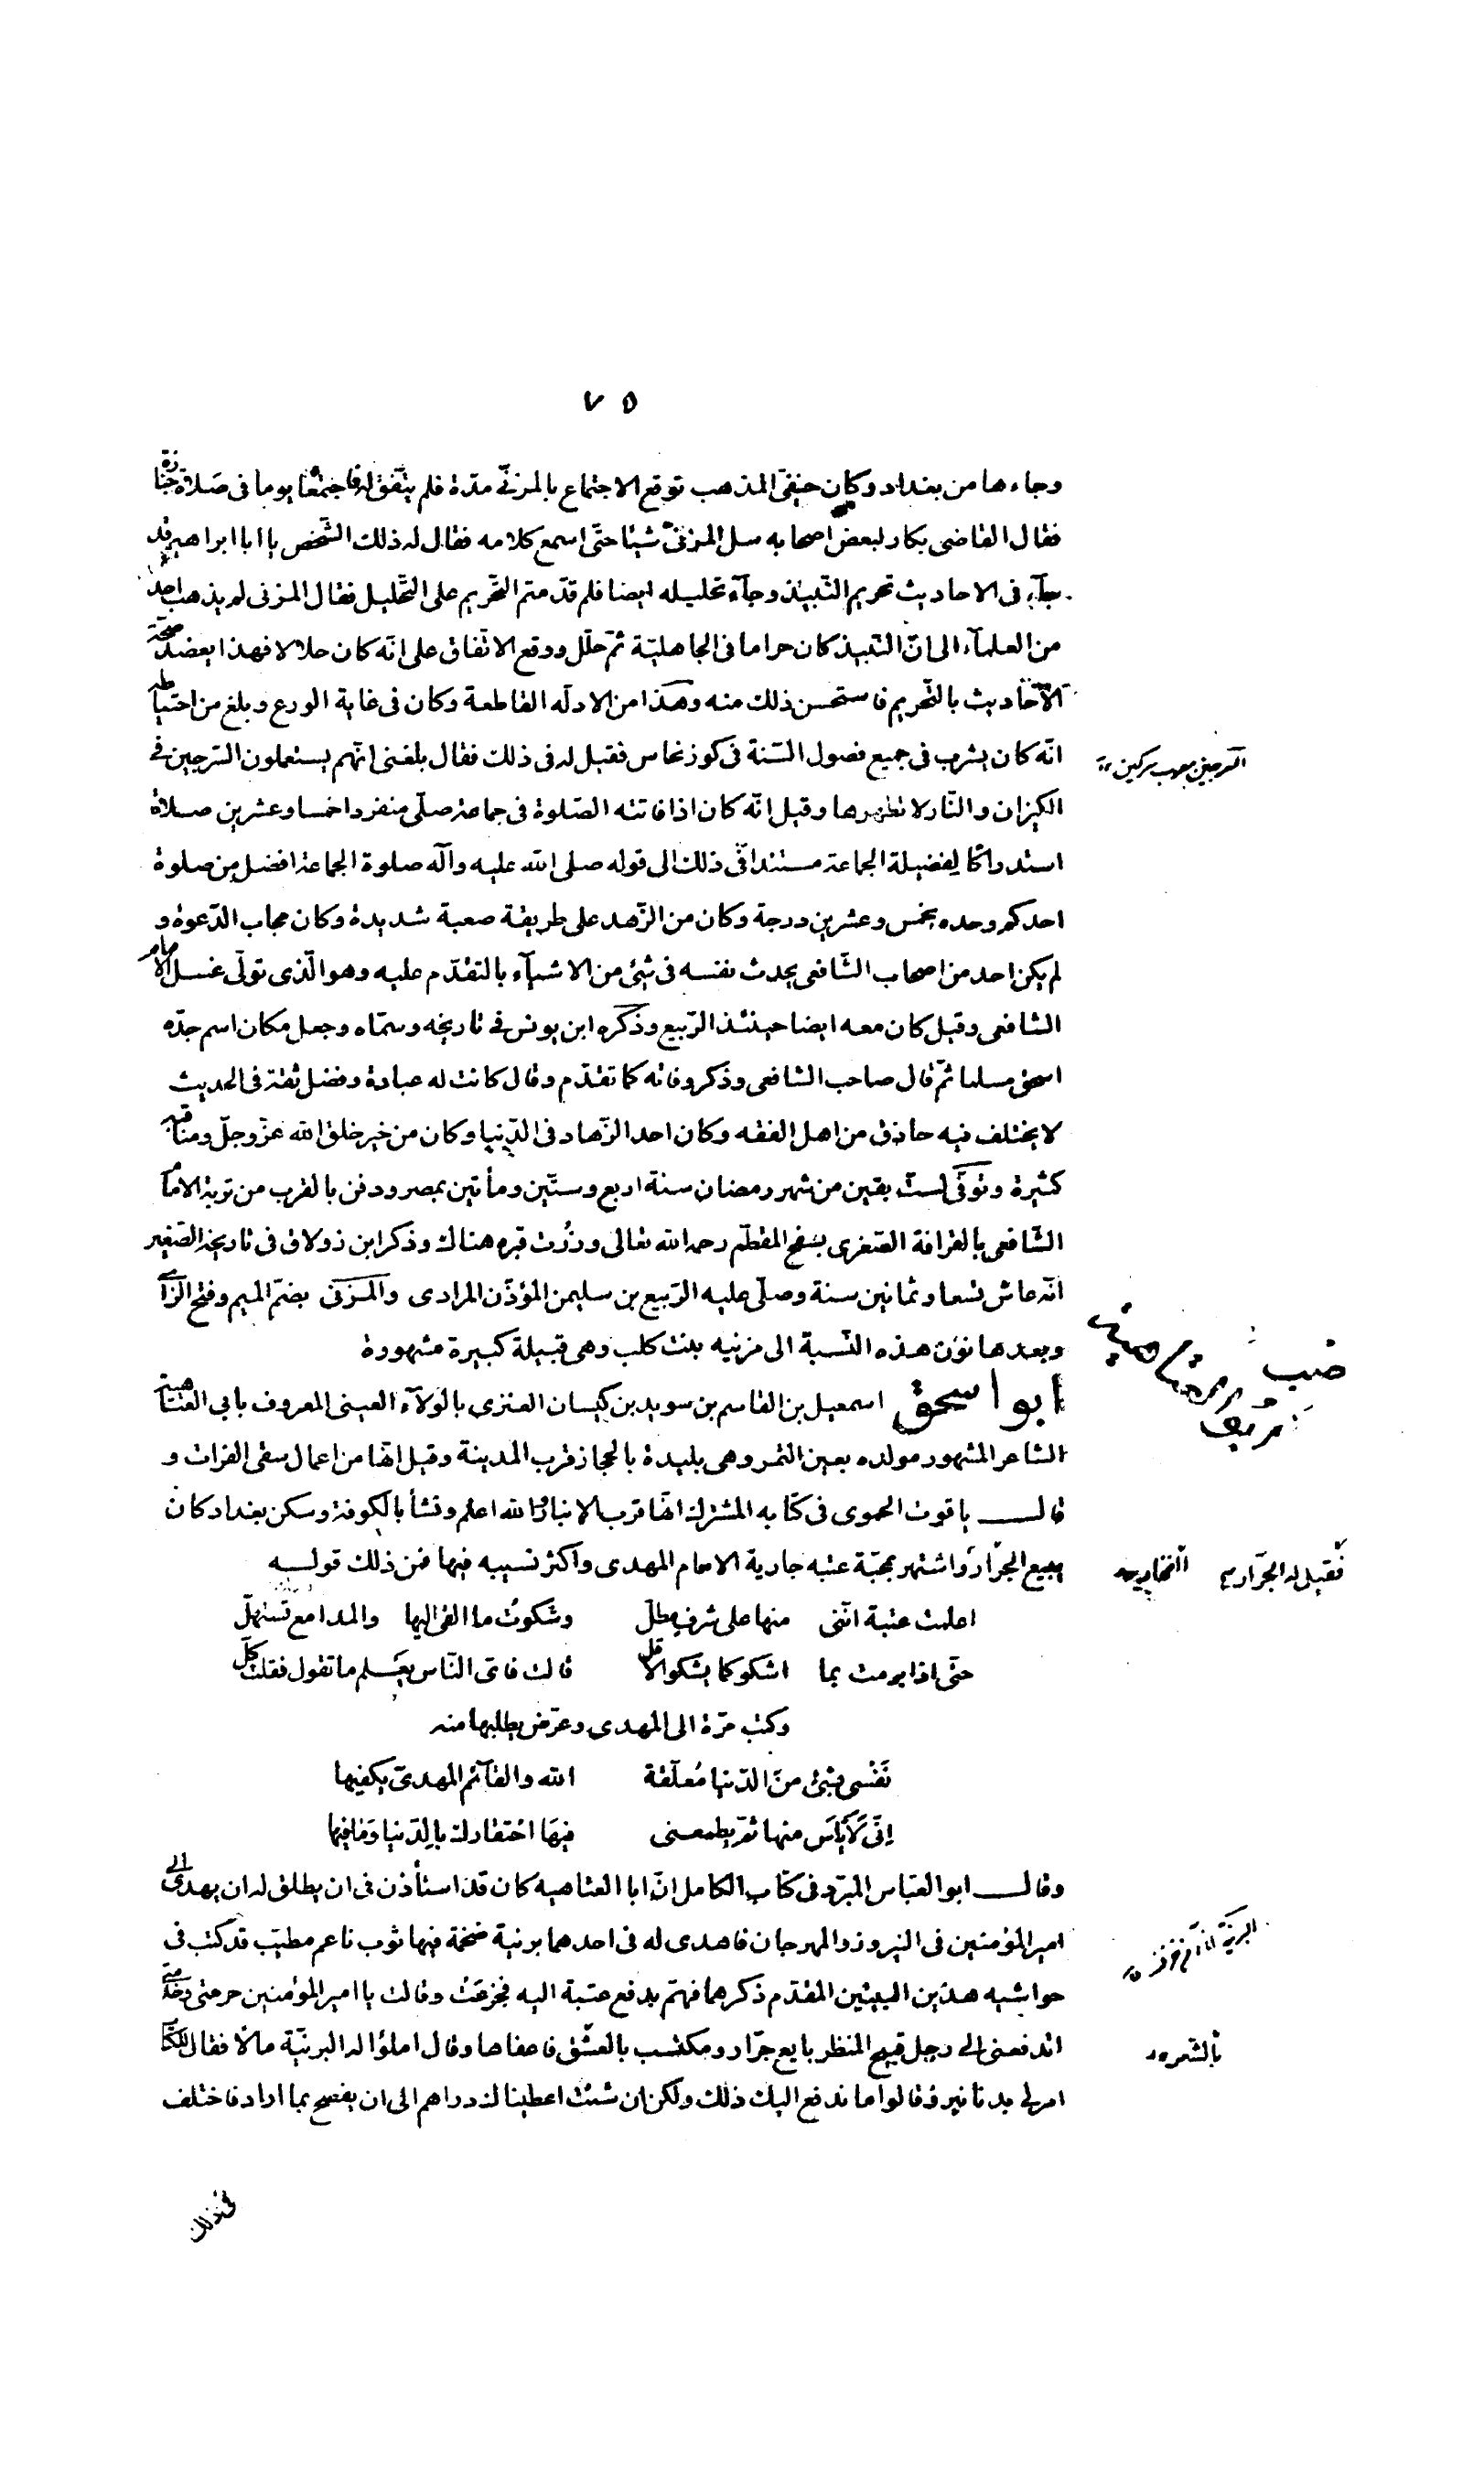 ٧٥
وجاءها من بغداد وكان حنفى المذهب توقع الاجتماع بالمزنى مدة فلم يتفق له فاجتمعا يوما فى صلاة جنازة
فقال القاضى بكار لبعض اصحابه سل المزنى شيئا حتى اسمع كلامه فقال له ذلك الشخص يا ابا ابراهيم قد
جآء فى الاحاديث تحريم النبيذ وجآء تحليله ايضا فلم قدمتم التحريم على التحليل فقال المزنى لم يذهب احد
من العلمآء الى ان النبيذ كان حراما فى الجاهلية ثم حلل ووقع الاتفاق على انه كان حلالا فهذا يعضد صحة
الاحاديث بالتحريم فاستحسن ذلك منه وهذا من الادلة القاطعة وكان فى غاية الورع وبلغ من احتياطه
انه كان يشرب فى جميع فصول السنة فى كوز نحاس فقيل له فى ذلك فقال بلغنى انهم يستعملون السرجين فى
السرجين معرب سركين
الكيزان والنار لا تطهرها وقيل انه كان اذا فاتته الصلوة فى جماعة صلى منفردا خمسا وعشرين صلاة
استدراكا لفضيلة الجماعة مستندا فى ذلك الى قوله صلى الله عليه وآله صلوة الجماعة افضل من صلوة
احدكم وحده بخمس وعشرين درجة وكان من الزهد على طريقة صعبة شديدة وكان مجاب الدعوة و
لم يكن احد من اصحاب الشافعى يحدث نفسه فى شئ من الاشيآء بالتقدم عليه وهو الذى تولى غسل الامام
الشافعى وقيل كان معه ايضا حينئذ الربيع وذكره ابن يونس فى تاريخه وسماه وجعل مكان اسم جده
اسحق مسلما ثم قال صاحب الشافعى وذكر وفاته كما تقدم وقال كانت له عبادة وفضل ثقة فى الحديث
لا يختلف فيه حاذق من اهل الفقه وكان احد الزهاد فى الدنيا وكان من خير خلق الله عز وجل ومناقبه
كثيرة وتوفى لست بقين من شهر رمضان سنة اربع وستين ومأتين بمصر ودفن بالقرب من تربة الامام
الشافعى بالقرافة الصغرى بسفح المقطم رحمه الله تعالى وزرت قبره هناك وذكر ابن زولاق فى تاريخه الصغير
انه عاش تسعا وثمانين سنة وصلى عليه الربيع بن سليمن المؤذن المرادى والمزنى بضم الميم وفتح الزآى
وبعدها نون هذه النسبة الى مزنيه بنت كلب وهى قبيلة كبيرة مشهورة
ابو اسحق اسمعيل بن القاسم بن سويد بن كيسان العنزى بالولآء العينى المعروف بابى العتاهية
الشاعر المشهور مولده بعين التمر وهى بليدة بالحجاز قرب المدينة وقيل انها من اعمال سقى الفرات و
قال ياقوت الحموى فى كتابه المشترك انها قرب الانبار والله اعلم ونشأ بالكوفة وسكن بغداد كان
يبيع الجرار واشتهر بمحبة عتبه جارية الامام المهدى واكثر نسيبه فيها فمن ذلك قوله
فقيل له الجرار
اعلمت عتبة اننى منها على شرف مطل وشكوت ما القى اليها والمدامع تستهل
حتى اذا برمت بما اشكو كما يشكو الاقل قالت فاى الناس يعلم ما تقول فقلت كل
وكتب مرة الى المهدى وعرض بطلبها منه
نفسى بشئ من الدنيا معلقة الله والقآئم المهدى يكفيها
انى لايأس منها ثم يطمعنى فيها احتقارك بالدنيا وما فيها
وقال ابو العباس المبرد فى كتاب الكامل ان ابا العتاهيه كان قد استأذن فى ان يطلق له ان يهدى الى
امير المؤمنين فى النيروز والمهرجان فاهدى له فى احدهما برنية ضخمة فيها ثوب ناعم مطيب قد كتب فى
البرنية اناء من خزف
حواشيه هذين البيتين المقدم ذكرهما فهم بدفع عتبة اليه فجزعت وقالت يا امير المؤمنين حرمتى وخدمتى
اتدفعنى الى رجل قبيح المنظر بايع جرار ومكتسب بالعشق فاعفاها وقال املؤا له البرنية مالا فقال للكتاب
بالشعر
امر لى بدنانير فقالوا ما ندفع اليك ذلك ولكن ان شئت اعطيناك دراهم الى ان يفصح بما اراد فاختلف
فى ذلك